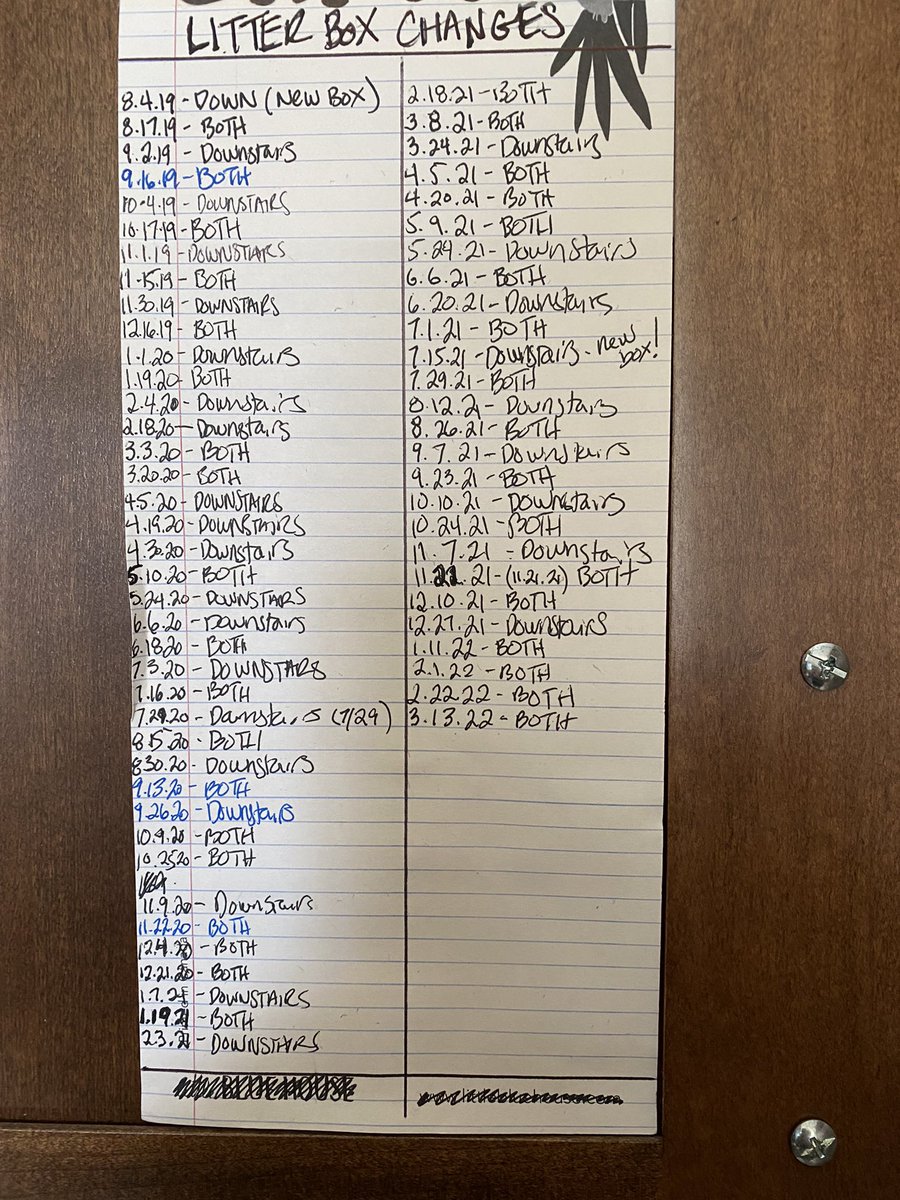 LITTER BOX CHANGES
8.4.19 - DOWN (NEW BOX)
8.17.19 - BOTH
9.2.19 - Downstairs
9.16.19 - BOTH
10.4.19 - DOWNSTAIRS
10.17.19 - BOTH
11.1.19 - DOWNSTIARS
11.15.19 - BOTH
11.30.19 - DOWNSTAIRS
12.16.19 - BOTH
1.1.20 - Downstairs
1.19.20 - BOTH
2.4.20 - Downstairs
2.18.20 - Downstairs
3.3.20 - BOTH
3.20.20 - BOTH
4.5.20 - DOWNSTAIRS
4.19.20 - DOWNSTAIRS
4.30.20 - Downstairs
5.10.20 - BOTH
5.24.20 - DOWNSTAIRS
6.6.20 - Downstairs
6.18.20 - BOTH
7.3.20 - DOWNSTARS
7.16.20 - BOTH
7.29.20 - Downstairs (7/29)
8.15.20 - BOTH
8.30.20 - Downstairs
9.13.20 - BOTH
9.26.20 - Downstairs
10.9.20 - BOTH
10.25.20 - BOTH
11.9.20 - Downstairs
11.22.20 - BOTH
12.4.20 - BOTH
12.21.20 - BOTH
1.7.21 - DOWNSTAIRS
1.19.21 - BOTH
2.3.21 - DOWNSTAIRS
2.18.21 - BOTH
3.8.21 - BOTH
3.24.21 - Downstairs
4.5.21 - BOTH
4.20.21 - BOTH
5.9.21 - BOTH
5.24.21 - Downstairs
6.6.21 - BOTH
6.20.21 - Downstairs
7.1.21 - BOTH
7.15.21 - Downstairs - new box!
7.29.21 - BOTH
8.12.21 - Downstairs
8.26.21 - BOTH
9.7.21 - Downstairs
9.23.21 - BOTH
10.10.21 - Downstairs
10.24.21 - BOTH
11.7.21 - Downstairs
11.21.21 - (11.21.21) BOTH
12.10.21 - BOTH
12.27.21 - Downstairs
1.11.22 - BOTH
2.1.22 - BOTH
2.22.22 - BOTH
3.13.22 - BOTH